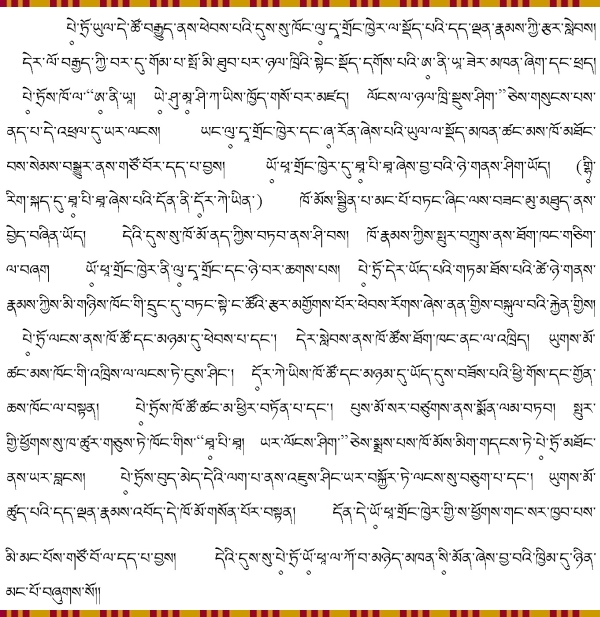 པེ་ཏྲོ་ཡུལ་དེ་ཚོ་བརྒྱུད་ནས་ཕེབས་པའི་དུས་སུ་ཁོང་ལུ་དྡ་གྲོང་ཁྱེར་ལ་སྡོད་པའི་དད་ལྡན་རྣམས་ཀྱི་རྩར་སླེབས།
དེར་ལོ་བརྒྱད་ཀྱི་བར་དུ་གོམ་པ་སྤོ་མི་ཐུབ་པར་ཉལ་ཁྲིའི་སྟེང་སྡོད་དགོས་པའི་ཨ་ནི་ཡ་ཟེར་མཁན་ཞིག་དང་ཕྲད།
པེ་ཏྲོས་ཁོ་ལ་“ཨ་ནི་ཡ། ཡེ་ཤུ་མཱ་ཤི་ཀ་ཡིས་ཁྱོད་གསོ་བར་མཛད། ལོངས་ལ་ཉལ་ཁྲི་སྡུས་ཤིག་”ཅེས་གསུངས་པས་
ནད་པ་དེ་འཕྲལ་དུ་ཡར་ལངས། ཡང་ལུ་དྡ་གྲོང་ཁྱེར་དང་ཞ་རོན་ཞེས་པའི་ཡུལ་ལ་སྡོད་མཁན་ཚང་མས་ཁོ་མཐོང་
བས་སེམས་བསྒྱུར་ནས་གཙོ་བོར་དད་པ་བྱས། ཡོ་ཕཱ་གྲོང་ཁྱེར་དུ་ཐཱ་པི་ཐཱ་ཞེས་བྱ་བའི་ཉེ་གནས་ཤིག་ཡོད། (གྷི་
རིག་སྐད་དུ་ཐཱ་པི་ཐཱ་ཞེས་པའི་དོན་ནི་དོར་ཀེ་ཡིན་) ཁོ་མོས་སྦྱིན་པ་མང་པོ་བཏང་ཞིང་ལས་བཟང་མུ་མཐུད་ནས་
བྱེད་བཞིན་ཡོད། དེའི་དུས་སུ་ཁོ་མོ་ནད་ཀྱིས་བཏབ་ནས་ཤི་བས། ཁོ་རྣམས་ཀྱིས་སྤུར་བཀྲུས་ནས་ཐོག་ཁང་གཅིག་
ལ་བཞག ཡོ་ཕཱ་གྲོང་ཁྱེར་ནི་ལུ་དྡ་གྲོང་དང་ཉེ་བར་ཆགས་པས། པེ་ཏྲོ་དེར་ཡོད་པའི་གཏམ་ཐོས་པའི་ཚེ་ཉེ་གནས་
རྣམས་ཀྱིས་མི་གཉིས་ཁོང་གི་དྲུང་དུ་བཏང་སྟེ་ང་ཚོའི་རྩར་མགྱོགས་པོར་ཕེབས་རོགས་ཞེས་ནན་གྱིས་བསྐུལ་བའི་རྐྱེན་གྱིས།
པེ་ཏྲོ་ལངས་ནས་ཁོ་ཚོ་དང་མཉམ་དུ་ཕེབས་པ་དང་། དེར་སླེབས་ནས་ཁོ་ཚོས་ཐོག་ཁང་ནང་ལ་འཁྲིད། ཡུགས་མོ་
ཚང་མས་ཁོང་གི་འཁྲིས་ལ་ལངས་ཏེ་ངུས་ཤིང་། དོར་ཀེ་ཡིས་ཁོ་ཚོ་དང་མཉམ་དུ་ཡོད་དུས་བཟོས་པའི་ཕྱི་གོས་དང་གྱོན་
ཆས་ཁོང་ལ་བསྟན། པེ་ཏྲོས་ཁོ་ཚོ་ཚང་མ་ཕྱིར་བཏོན་པ་དང་། པུས་མོ་སར་བཙུགས་ནས་སྨོན་ལམ་བཏབ། སྤུར་
གྱི་ཕྱོགས་སུ་ཁ་ཚུར་གཅུས་ཏེ་ཁོང་གིས་“ཐཱ་པི་ཐཱ། ཡར་ལོངས་ཤིག་”ཅེས་སྨྲས་པས་ཁོ་མོས་མིག་གདངས་ཏེ་པེ་ཏྲོ་མཐོང་
ནས་ཡར་བླངས། པེ་ཏྲོས་བུད་མེད་དེའི་ལག་པ་ནས་འཇུས་ཤིང་ཡར་བསྐྱོར་ཏེ་ལངས་སུ་བཅུག་པ་དང་། ཡུགས་མོ་
ཚུད་པའི་དད་ལྡན་རྣམས་འབོད་དེ་ཁོ་མོ་གསོན་པོར་བསྟན། དོན་དེ་ཡོ་ཕཱ་གྲོང་ཁྱེར་གྱི་ས་ཕྱོགས་གང་སར་ཁྱབ་པས་
མི་མང་པོས་གཙོ་བོ་ལ་དད་པ་བྱས། དེའི་དུས་སུ་པེ་ཏྲོ་ཡོ་ཕཱ་ལ་ཀོ་བ་མཉེད་མཁན་སི་མོན་ཞེས་བྱ་བའི་ཁྱིམ་དུ་ཉིན་
མང་པོ་བཞུགས་སོ།།